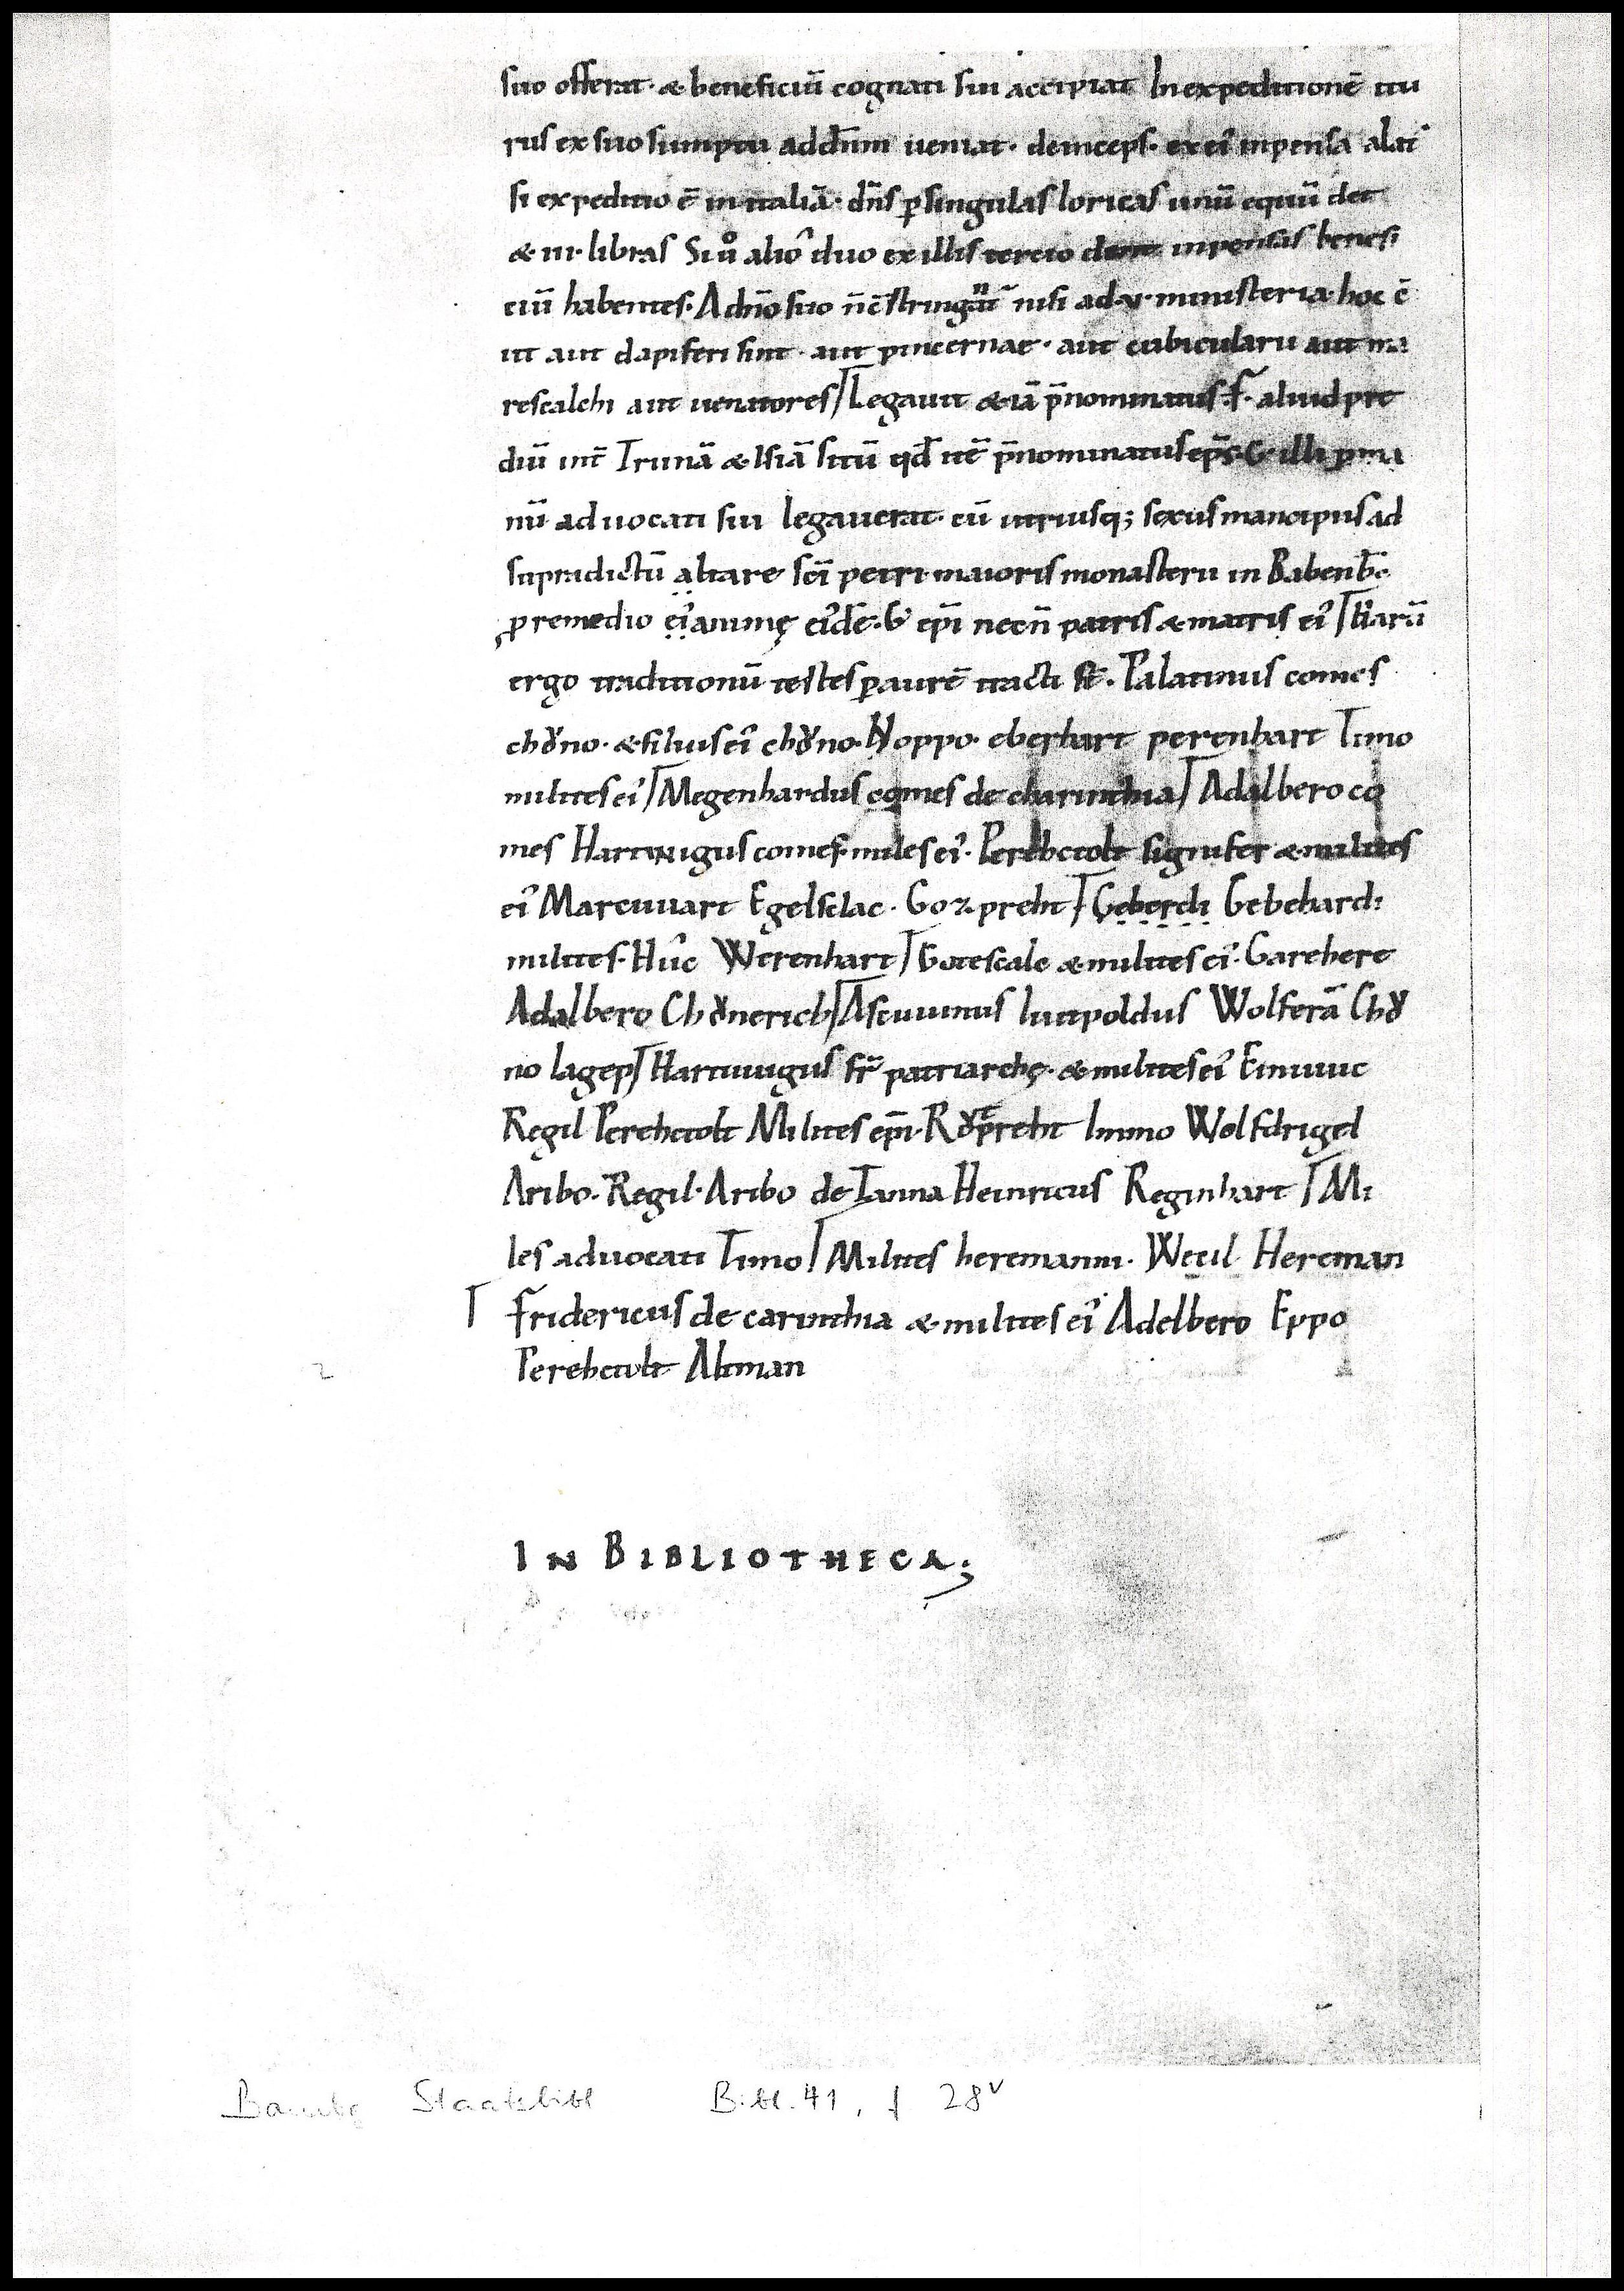 suo offerat · & beneficiū cognati sui accipiat In expeditionē itu
rus ex suo sumptu ad dn̄m ueniat · deinceps · ex ei᾽ inpensa alat᾽
si expeditio ē in italiā · dn̄s ꝑ singulas loricas unū equū det
& ·III· libras Siů alio᾽ duo ex illis tercio dent inpensas benefi
ciū habentes · Ad dn̄o suo n̄ c̄stringant᾽ nisi ad ·v· ministeria · hoc ē
ut aut dapiferi sint · aut pincernae · aut cubicularii aut ma
rescalchi aut uenatores / Legauit & iā p̄nominatus · F · aliud pre
diū int̄ Trunā & Isiā sitū qd̄ itē p̄nominatus ep̄s · G · illi ꝑ ma
nū aduocati sui legauerat · cū utriusq; sexus mancipiis ad
supradictū altare sc̄i petri maioris monasterii in Babenb̄c
ꝓ remedio ei᾽ animę ei᾽dē · G᾽ ep̄i necn̄ patris & matris ei᾽ / Harū
ergo traditionū testes ꝑ aurē tracti st̄ · Palatinus comes
chȣno · & filius ei᾽ chȣno · Noppo · eberhart perenhart Timo
milites ei᾽ / Megenhardus comes de charinthia / Adalbero co
mes Hartwigus comes · miles ei᾽ · Perehctolt signifer & milites
ei᾽ Marcuuart Egelsclac · Gozpreht / Geberdi Gebehardi
milites · Hûc Werenhart / Gotescalc & milites ei᾽ · Garehere
Adalbero Chȣnerich / Ascuuinus liutpoldus Wolferā Chȣ
no lagep / Hartuuigus fr̄ patriarchę · & milites ei᾽ Einuuic
Regil Perehctolt Milites ep̄i · Rȣtpreht Immo Wolfdrigel
Aribo · Regil · Aribo de Tanna Heinricus Reginhart / Mi
les aduocati Timo / Milites heremanni · Wecil Hereman
Fridericus de carinthia & milites ei᾽ Adelbero Eppo
Perehctolt Altman
IN BIBLIOTHECA;
2
Bamberg Staatsbibl Bibl. 41, f 28v